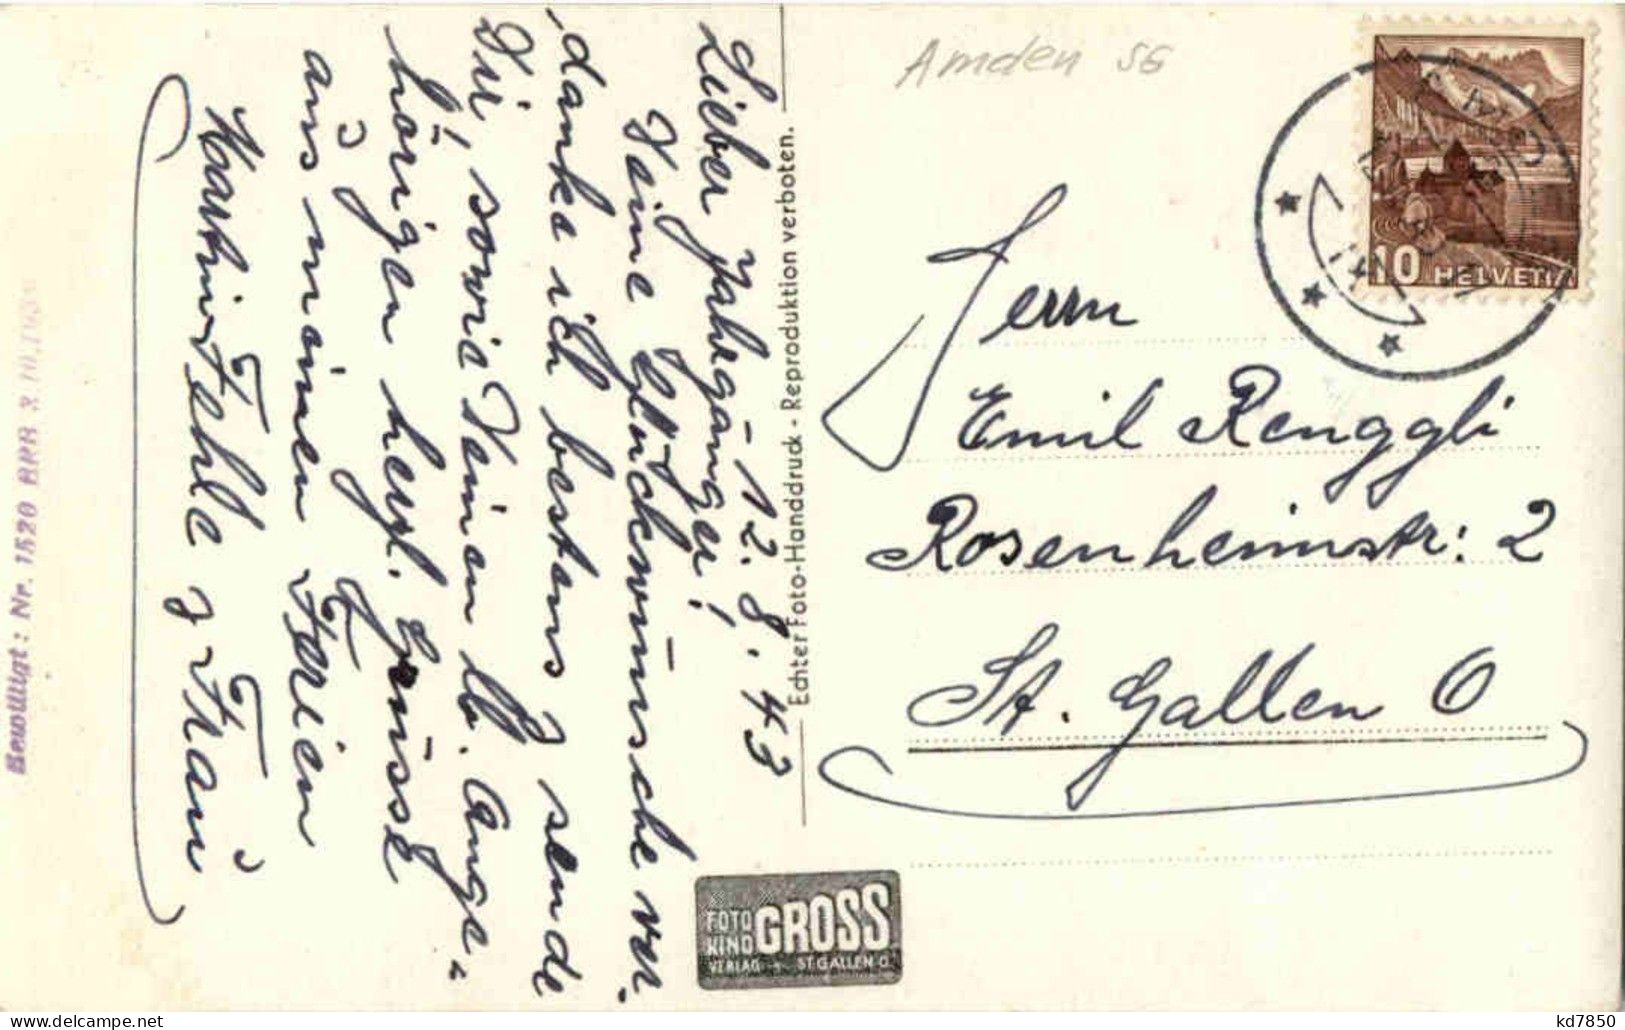 Amden SG
10 HELVETIA
Lieber Jahrgänger! -12. 8. 43
Deine Glückwünsche ver-
danke ich bestens & sende
Dir, sowie Deinen lb. Ange-
hörigen herzl. Grüsse
aus meinen Ferien
Fehle & Frau
Echter Foto-Handdruck - Reproduktion verboten.
Bewilligt: Nr. 1520 BRB 3.10.1939
Herrn
Emil Renggli
Rosenheimstr: 2
St. Gallen O
FOTO
KINO
GROSS
VERLAG ST. GALLEN O.
kd7850